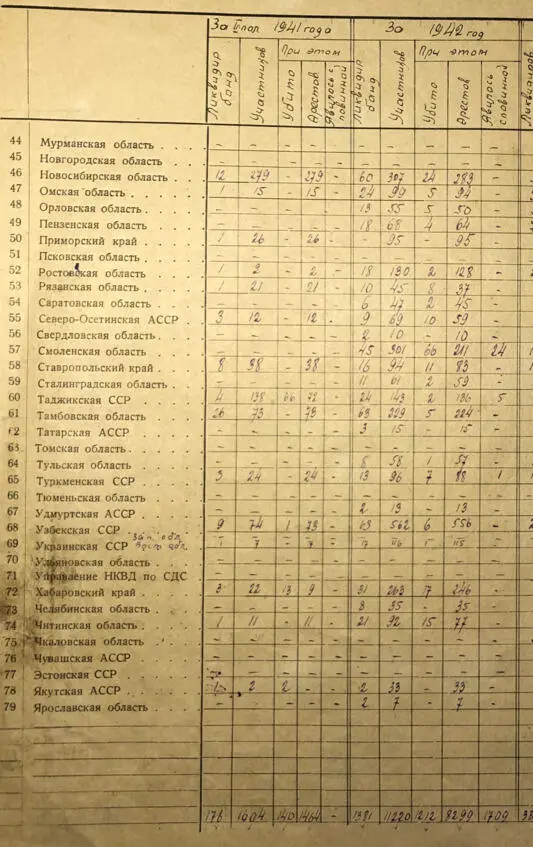 За II пол. 1941 года За 1942 год
При этом При этом
Ликвидир. банд Участников Убито Арестов. Явилось с повинной Ликвидир. банд Участников Убито Арестов. Явилось с повинной
44 Мурманская область . . . . – – – – – – – – –
45 Новгородская область . . . . – – – – – – – – –
46 Новосибирская область . . . . 12 279 - 279 – 60 307 24 283 –
47 Омская область . . . . 1 15 - 15 – 24 99 5 94 –
48 Орловская область . . . . – – – – – 13 55 5 50 –
49 Пензенская область . . . . – – – – – 18 68 4 64 –
50 Приморский край . . . . 1 26 - 26 – - 95 - 95 –
51 Псковская область . . . . – – – – – – – – – –
52 Ростовская область . . . . 1 2 - 2 – 18 130 2 128 –
53 Рязанская область . . . . 1 21 - 21 – 10 45 8 37 –
54 Саратовская область . . . . – – – – – 6 47 2 45 –
55 Северо-Осетинская АССР 3 12 - 12 – 9 69 10 59 –
56 Свердловская область . . . – – – – – 2 10 - 10 –
57 Смоленская область . . . . – – – – – 45 301 66 211 24
58 Ставропольский край . . . . 8 38 - 38 – 16 94 11 83 –
59 Сталинградская область . . . – – – – – 11 61 2 59 –
60 Таджикская ССР . . . . 4 138 66 72 – 24 143 2 136 5
61 Тамбовская область . . . . 26 73 - 73 – 63 229 5 224 –
62 Татарская АССР . . . . – – – – – 3 15 - 15 –
63 Томская область . . . . – – – – – – – – – –
64 Тульская область . . . . – – – – – 8 58 1 57 –
65 Туркменская ССР . . . . 3 24 - 24 – 13 96 7 88 1
66 Тюменьская область . . . . – – – – – – – – – –
67 Удмуртская АССР . . . . – – – – – 2 13 - 13 –
68 Узбекская ССР . . . . 9 74 1 73 – 63 562 6 556 –
69 Украинская ССР 1 7 - 7 – 17 116 1 115 –
70 Ульяновская область . . . . – – – – – – – – – –
71 Управление НКВД по СДС – – – – – – – – – –
72 Хабаровский край . . . . 3 22 13 9 – 31 263 17 246 –
73 Челябинская область . . . . – – – – – 8 35 - 35 –
74 Читинская область . . . . 1 11 - 11 – 21 92 15 77 –
75 Чкаловская область . . . . – – – – – – – – – –
76 Чувашская АССР . . . . – – – – – – – – – –
77 Эстонская ССР . . . . – – – – – – – – – –
78 Якутская АССР . . . . 1 2 2 - – 2 33 - 33 –
79 Ярославская область . . . . – – – – – 2 7 - 7 –
176 1604 140 1464 - 1381 11220 1212 8299 1709